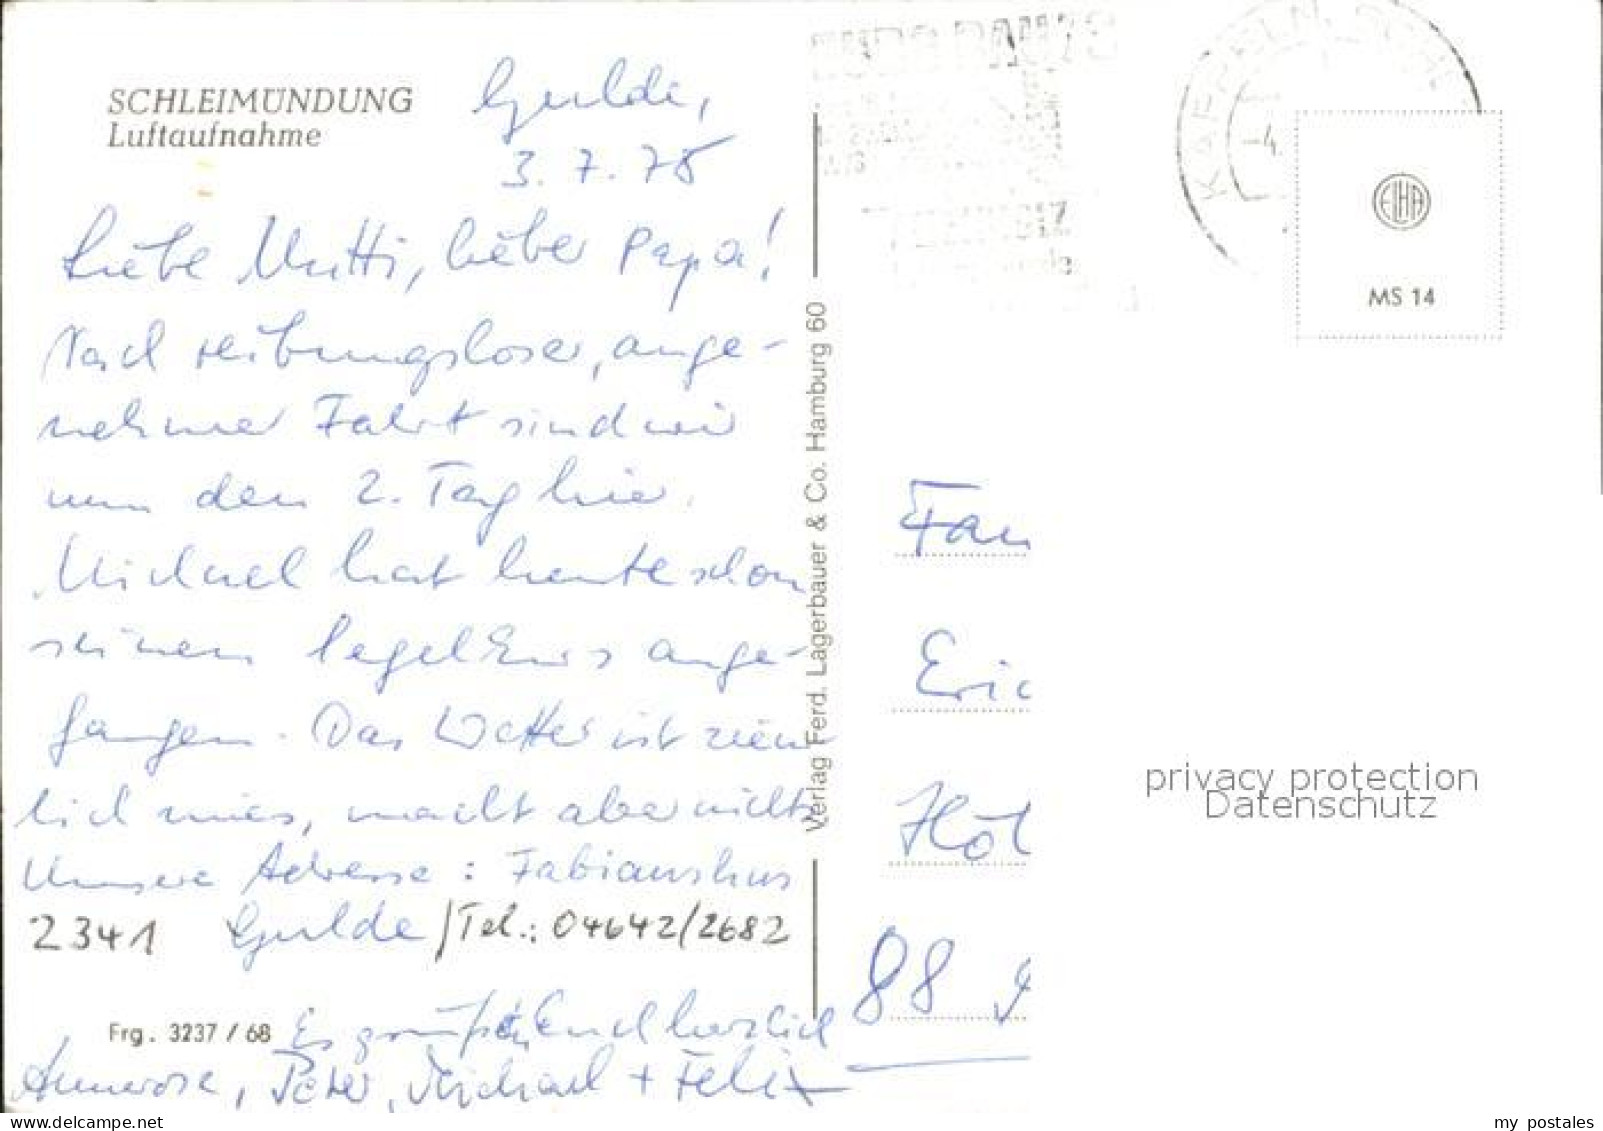 SCHLEIMÜNDUNG
Luftaufnahme
Gulde,
3. 7. 78
Liebe Mutti, lieber Papa!
Nach reibungsloser, ange-
nehmer Fahrt sind wir
nun den 2. Tag hier.
Michael hat heute schon
seinen Segelkurs ange-
fangen. Das Wetter ist ziem
lich mies, macht aber nichts
Unsere Adresse: Fabianshus
2341 Gulde / Tel.: 04642/2682
Es grüßen Euch herzlich
Annerose, Peter, Michael + Felix
Frg. 3237 / 68
Verlag Ferd. Lagerbauer & Co. Hamburg 60
KAPPELN,
-4.
ELHA
MS 14
Fam
Eric
Höl
88
privacy protection
Datenschutz
my postales